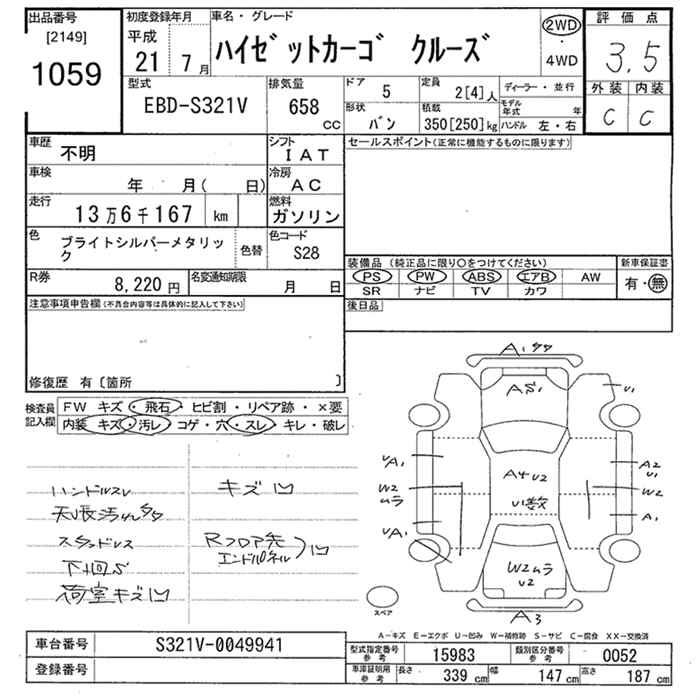 出品番号
[2149]
1059
初度登録年月
平成
21 7月
車名・グレード
ハイゼットカーゴ クルーズ
2WD
・
4WD
評価点
3.5
外装 内装
C C
型式
EBD-S321V
排気量
658
CC
ドア
5
定員
2[4]人
ディーラー・並行
形状
バン
積載
350[250]kg
モデル年式 年
ハンドル 左・右
車歴
不明
シフト
IAT
車検
年 月( 日)
冷房
AC
走行
13万6千167 km
燃料
ガソリン
色
ブライトシルバーメタリック
色替
色コード
S28
R券
8,220円
名変通知期限
月 日
セールスポイント(正常に機能するものに限ります)
装備品(純正品に限り○をつけてください)
PS PW ABS エアB AW
SR ナビ TV カワ
新車保証書
有・無
後日品
注意事項申告欄(不具合内容等は具体的に記入して下さい)
修復歴 有〔箇所 〕
検査員記入欄
FW キズ・飛石・ヒビ割・リペア跡・×要
内装 キズ・汚レ・コゲ・穴・スレ・キレ・破レ
ハンドルスレ
キズ凹
天張汚レタタ
スタッドレス
下回S
荷室キズ凹
Rフロア先
エンドパネル
凹
A1タタ
AS1
U1
UA1
A4U2
U1数
A2
U1
W2
ムラ
W2
A1
UA1
W2ムラ
U2
A3
スペア
A-キズ E-エクボ U-凹み W-補修跡 S-サビ C-腐食 XX-交換済
車台番号
S321V-0049941
登録番号
型式指定番号
参考
15983
類別区分番号
参考
0052
車庫証明用
参考
長さ
339 cm
幅
147 cm
高さ
187 cm